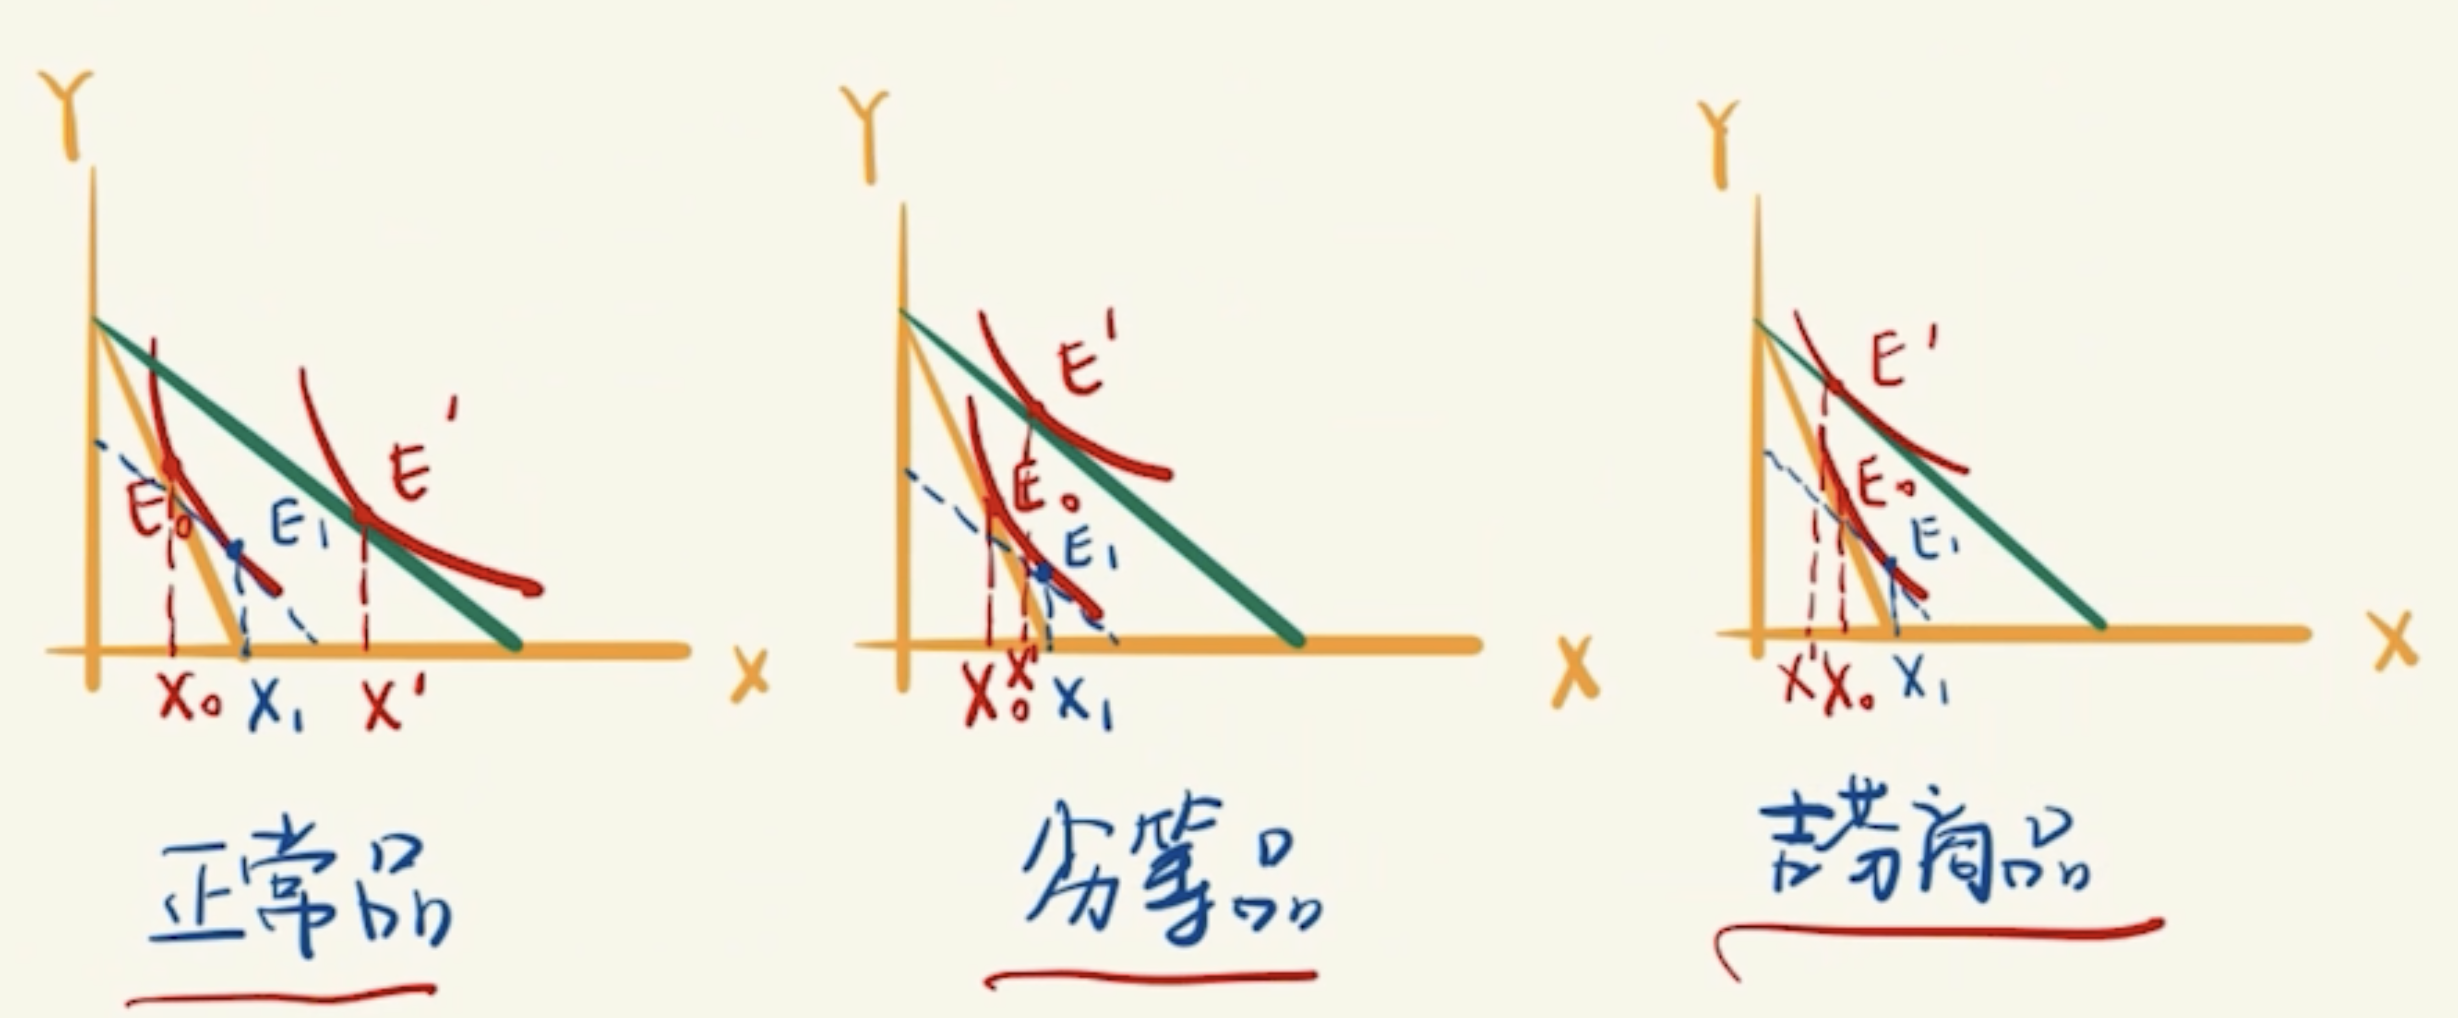 Y
E'
E₀
E₁
X₀ X₁ X'
X
正常品
Y
E'
E₀
E₁
X₀ X' X₁
X
劣等品
Y
E'
E₀
E₁
X' X₀ X₁
X
吉芬商品